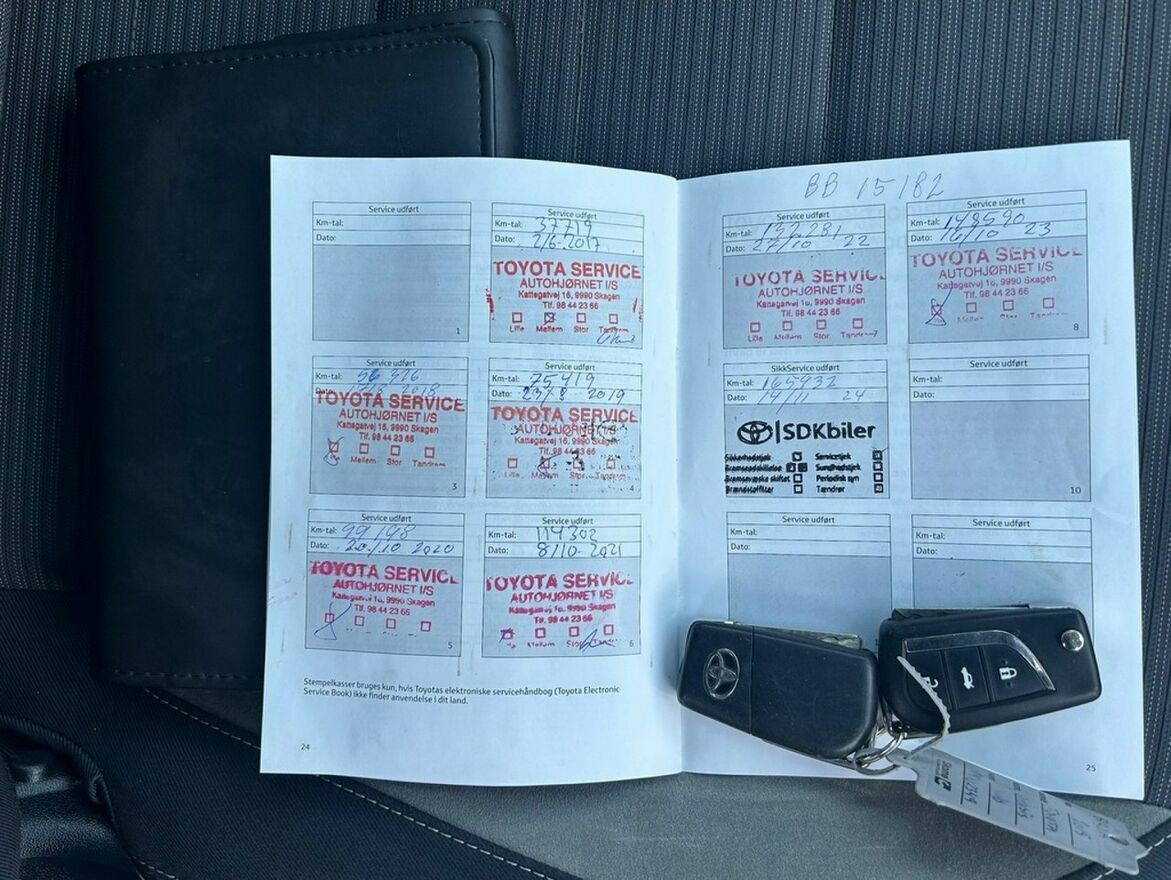 BB 15182
Service udført
Km-tal:
Dato:
1
Service udført
Km-tal: 37719
Dato: 2/6-2017
TOYOTA SERVICE
AUTOHJØRNET I/S
Kattegatvej 16, 9990 Skagen
Tlf. 98 44 23 66
Lille Mellem Stor Tændrem
Service udført
Km-tal: 56 976
Dato: 2018
TOYOTA SERVICE
AUTOHJØRNET I/S
Kattegatvej 16, 9990 Skagen
Tlf. 98 44 23 66
Mellem Stor Tændrem
3
Service udført
Km-tal: 75419
Dato: 23/8 2019
TOYOTA SERVICE
AUTOHJØRNET I/S
Kattegatvej 16, 9990 Skagen
Tlf. 98 44 23 66
4
Service udført
Km-tal: 99198
Dato: 20/10 2020
TOYOTA SERVICE
AUTOHJØRNET I/S
Kattegatvej 16, 9990 Skagen
Tlf. 98 44 23 66
5
Service udført
Km-tal: 114302
Dato: 8/10-2021
TOYOTA SERVICE
AUTOHJØRNET I/S
Kattegatvej 16, 9990 Skagen
Tlf. 98 44 23 66
Mellem
6
Stempelkasser bruges kun, hvis Toyotas elektroniske servicehåndbog (Toyota Electronic
Service Book) ikke finder anvendelse i dit land.
24
Service udført
Km-tal: 132281
Dato: 27/10 22
TOYOTA SERVICE
AUTOHJØRNET I/S
Kattegatvej 16, 9990 Skagen
Tlf. 98 44 23 66
Lille Mellem Stor Tændrem
7
Service udført
Km-tal: 148590
Dato: 10/10 23
TOYOTA SERVICE
AUTOHJØRNET I/S
Kattegatvej 16, 9990 Skagen
Tlf. 98 44 23 66
8
SikkService udført
Km-tal: 165932
Dato: 14/11 24
SDKbiler
Sikkerhedstjek Servicetjek
Bremseadskillelse Sundhedstjek
Bremsevæske skiftet Periodisk syn
Brændstoffilter Tændrør
Service udført
Km-tal:
Dato:
10
Service udført
Km-tal:
Dato:
Service udført
Km-tal:
Dato:
25